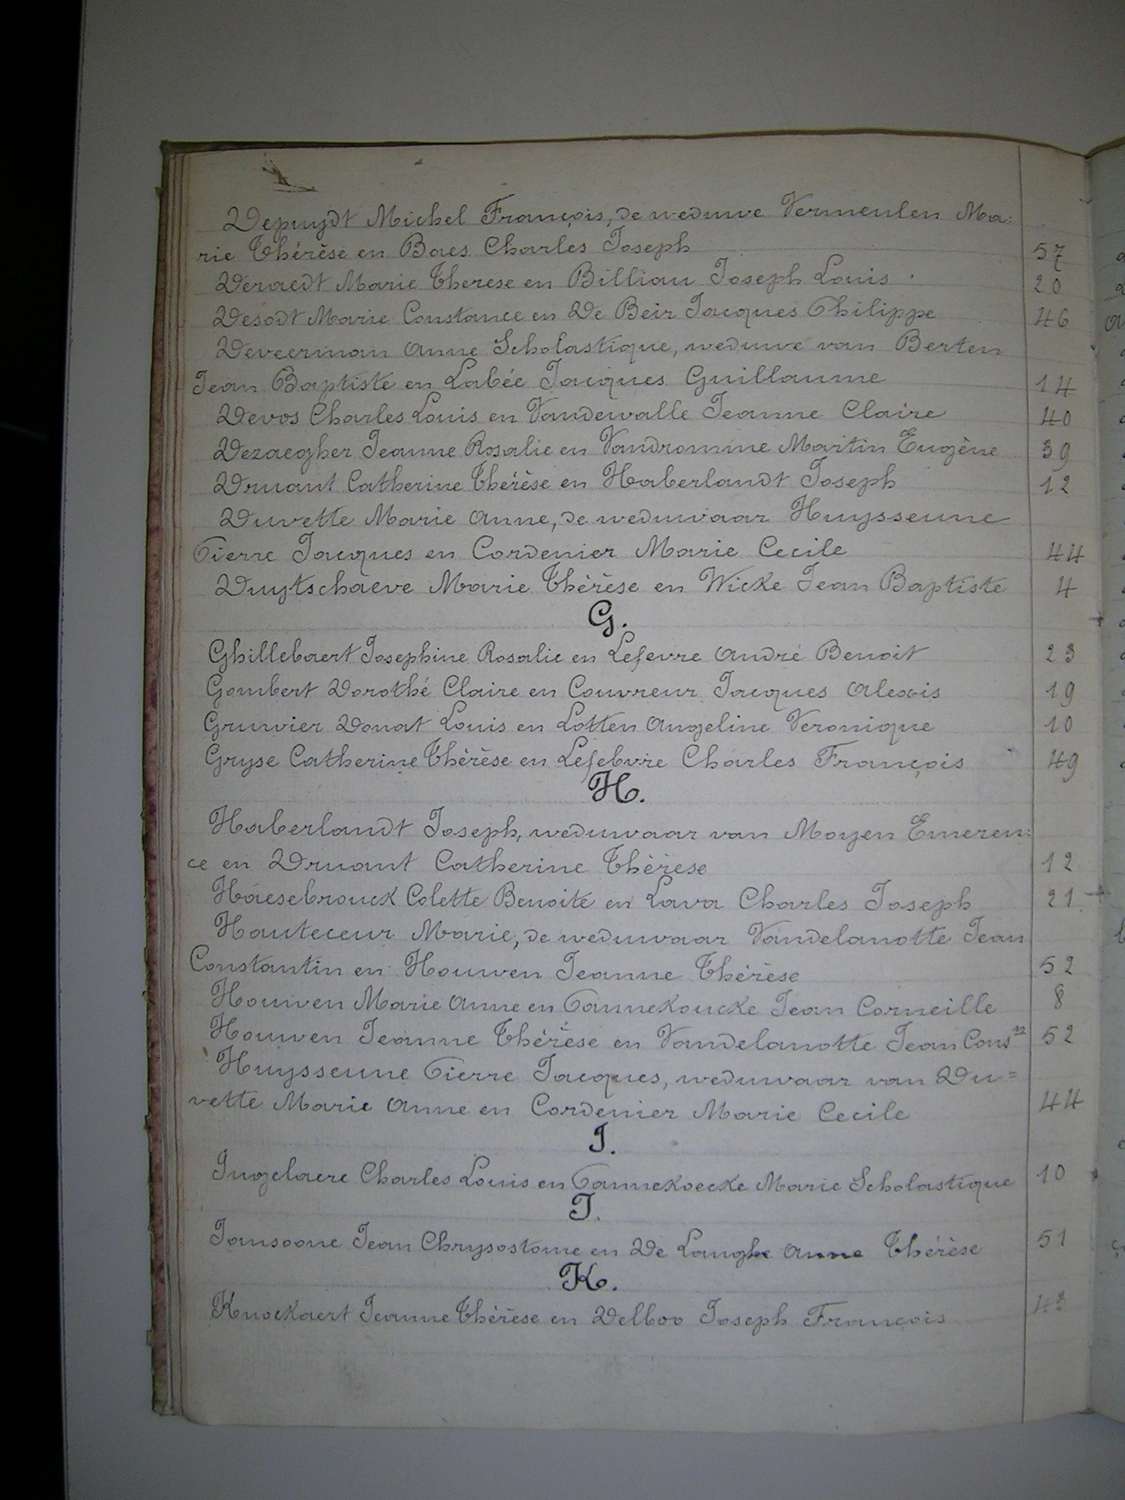 Depuydt Michel François, de weduwe Vermeulen Ma:
rie Thérèse en Baes Charles Joseph 57
Deraedt Marie Therese en Billiau Joseph Louis . 20
Desodt Marie Constance en De Beir Jacques Philippe 46
Deveerman Anne Scholastique, weduwe van Berten
Jean Baptiste en Labée Jacques Guillaume 14
Devos Charles Louis en Vandewalle Jeanne Claire 40
Dezaegher Jeanne Rosalie en Vandromme Martin Eugène 39
Druant Catherine Thérèse en Haberlandt Joseph 12
Duvette Marie Anne, de weduwaar Huysseune
Pierre Jacques en Cordenier Marie Cecile 44
Duytschaeve Marie Thérèse en Wicke Jean Baptiste 4
G.
Ghillebaert Josephine Rosalie en Lefevre André Benoit 23
Gombert Dorothé Claire en Couvreur Jacques Alexis 19
Gruwier Donat Louis en Lotten Angeline Veronique 10
Gryse Catherine Thérèse en Lefebvre Charles François 49
H.
Haberlandt Joseph, weduwaar van Moyen Emeren:
ce en Druant Catherine Thérèse 12
Haesebrouck Colette Benoite en Lava Charles Joseph 21
Hauteceur Marie, de weduwaar Vandelanotte Jean
Constantin en Houwen Jeanne Thérèse 52
Houwen Marie Anne en Pannekoucke Jean Corneille 8
Houwen Jeanne Thérèse en Vandelanotte Jean Cons 52
Huysseune Pierre Jacques, weduwaar van Du=
vette Marie Anne en Cordenier Marie Cecile 44
I.
Ingelaere Charles Louis en Pannekoecke Marie Scholastique 10
J.
Jansoone Jean Chrysostome en De Langhe Anne Thérèse 51
K.
Knockaert Jeanne Thérèse en Delboo Joseph François 43